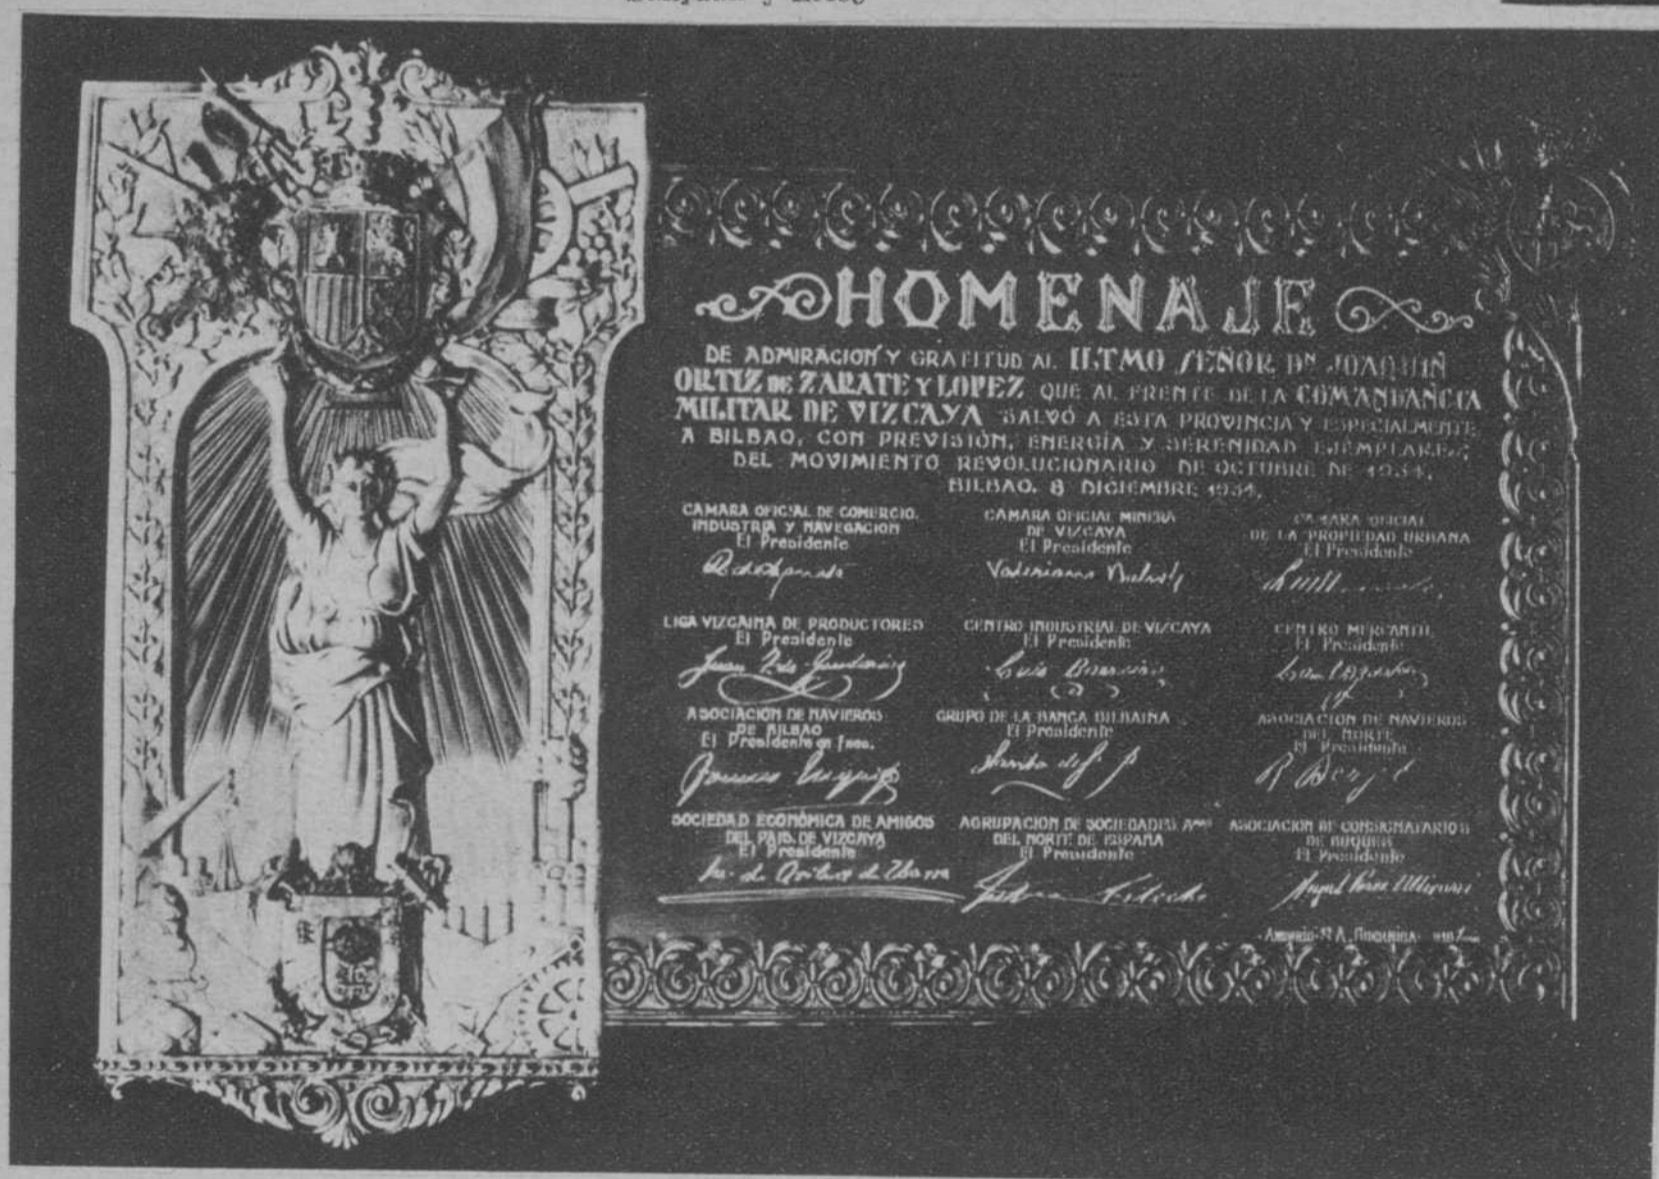 HOMENAJE
DE ADMIRACION Y GRATITUD AL ILTMO SEÑOR DN JOAQUIN
ORTIZ DE ZARATE Y LOPEZ QUE AL FRENTE DE LA COMANDANCIA
MILITAR DE VIZCAYA SALVÓ A ESTA PROVINCIA Y ESPECIALMENTE
A BILBAO, CON PREVISIÓN, ENERGÍA Y SERENIDAD EJEMPLARES,
DEL MOVIMIENTO REVOLUCIONARIO DE OCTUBRE DE 1934.
BILBAO, 8 DICIEMBRE 1934.
CAMARA OFICIAL DE COMERCIO,
INDUSTRIA Y NAVEGACION
El Presidente
CAMARA OFICIAL MINERA
DE VIZCAYA
El Presidente
Valeriano
CAMARA OFICIAL
DE LA PROPIEDAD URBANA
El Presidente
LIGA VIZCAINA DE PRODUCTORES
El Presidente
Juan
CENTRO INDUSTRIAL DE VIZCAYA
El Presidente
Luis
CENTRO MERCANTIL
El Presidente
ASOCIACIÓN DE NAVIEROS
DE BILBAO
El Presidente en func.
GRUPO DE LA BANCA BILBAINA
El Presidente
ASOCIACION DE NAVIEROS
DEL NORTE
El Presidente
R
SOCIEDAD ECONÓMICA DE AMIGOS
DEL PAIS DE VIZCAYA
El Presidente
de Ybarra
AGRUPACION DE SOCIEDADES
DEL NORTE DE ESPAÑA
El Presidente
ASOCIACION DE CONSIGNATARIOS
DE BUQUES
El Presidente